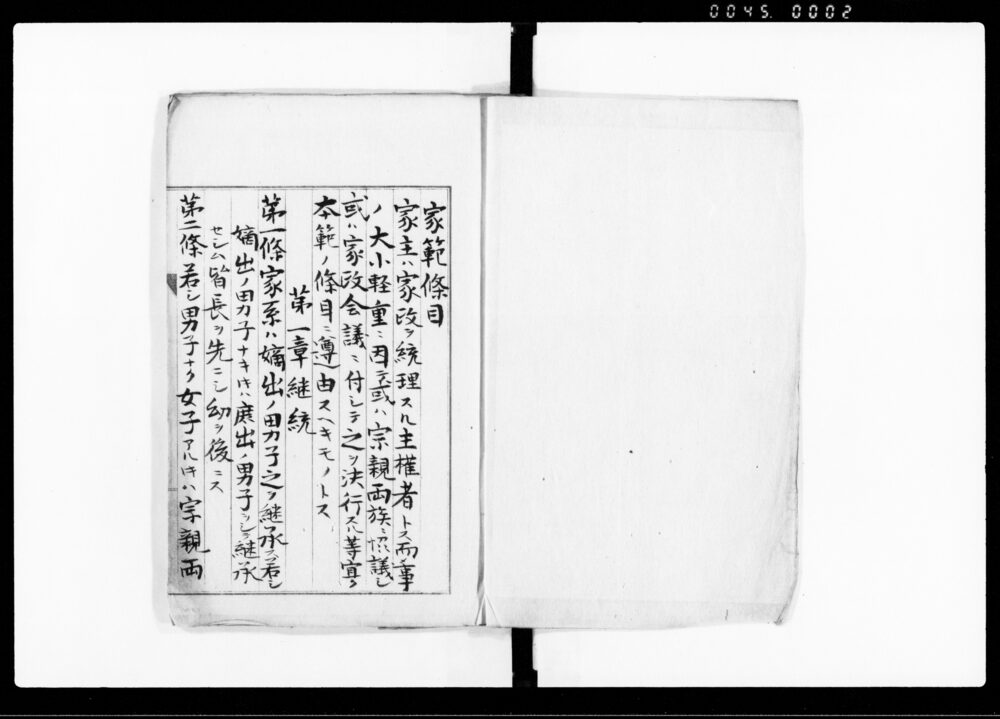 0045. 0002
家範條目
家主ハ家政ヲ統理スル主權者トス而事
ノ大小軽重ニ因テ或ハ宗親両族ニ協議シ
或ハ家政会議ニ付シテ之ヲ決行スル等宜ク
本範ノ條目ニ遵由スヘキモノトス
第一章継統
第一條家系ハ嫡出ノ男子之ヲ継承ス若シ
嫡出ノ男子ナキ时ハ庶出ノ男子ヲシテ継承
セシム皆長ヲ先ニシ幼ヲ後ニス
第二條若シ男子ナク女子アル时ハ宗親両